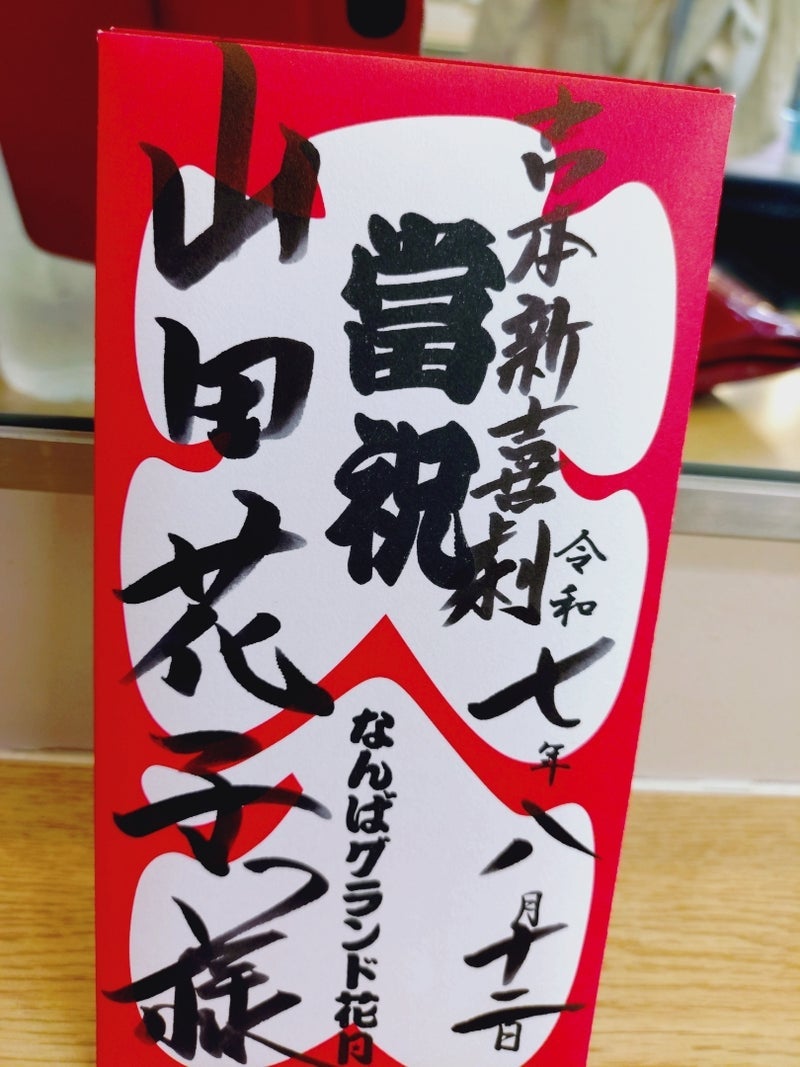 吉本新喜劇
令和七年八月十二日
當祝
なんばグランド花月
山田花子様